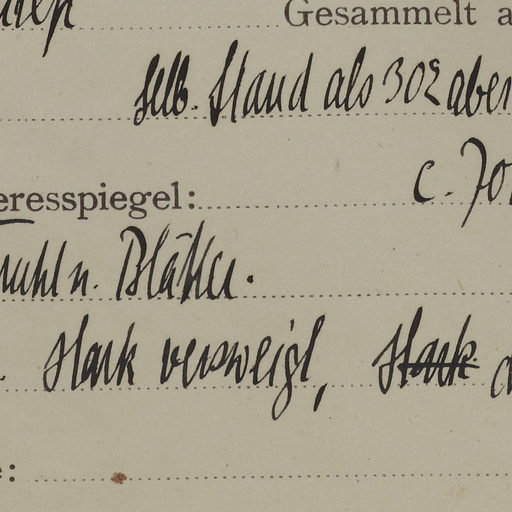 Gesammelt a
selb. Stand als 302 aber
eresspiegel:
c. 70
n. Blätter.
stark verzweigt, stark
: